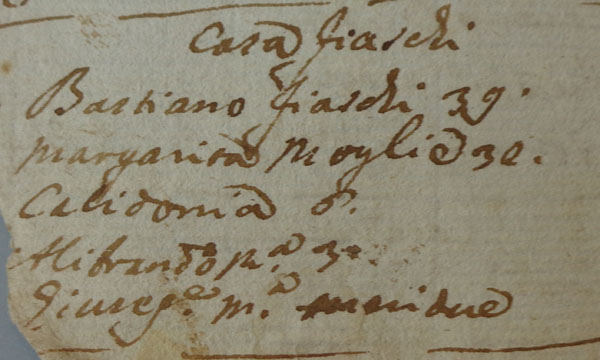 Casa fiaschi
Bastiano fiaschi 39.
Margarita Moglie 30.
Calidonia 6.
Alibrando M.ª 3.
Giusep.e M.ª